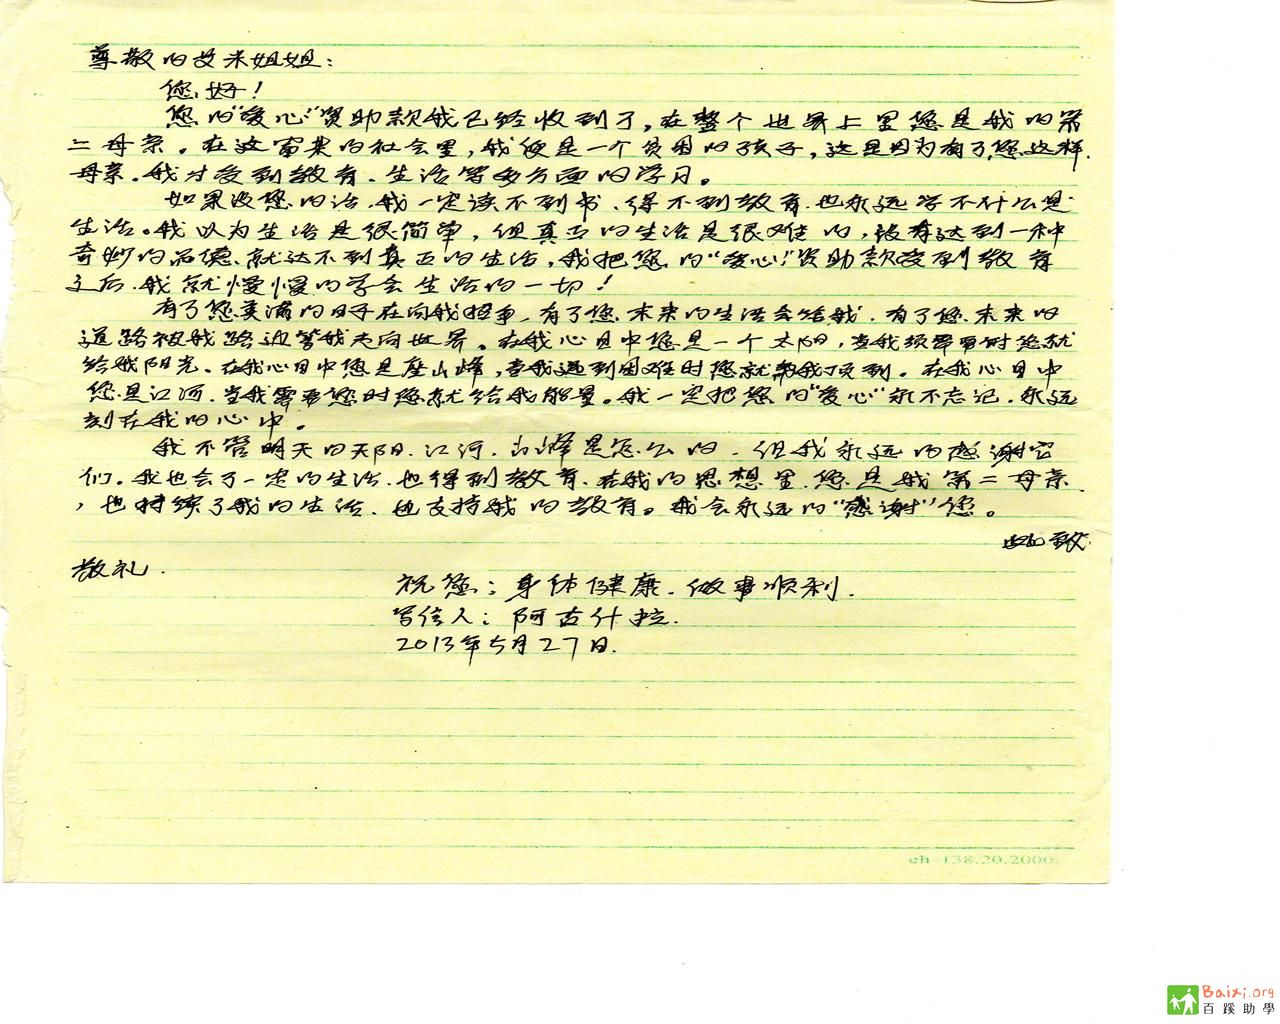 尊敬的艾米姐姐：
您好！
您的“爱心”资助款我已经收到了，在整个世界上里您是我的第
二母亲。在这富裕的社会里，我便是一个贫困的孩子，这是因为有了您这样
母亲。我才受到教育、生活等多方面的学习。
如果没您的话，我一定读不到书、得不到教育，也永远学不什么是
生活。我以为生活是很简单，但真正的生活是很难的，没有达到一种
奇妙的品德，就达不到真正的生活，我把您的“爱心”资助款受到教育
之后，我就慢慢的学会生活的一切！
有了您美满的日子在向我招手，有了您，未来的生活会给我，有了您，未来的
道路被我路边等我走向世界。在我心目中您是一个太阳，当我须需要时您就
给我阳光。在我心目中您是座山峰，当我遇到困难时您就帮我顶到。在我心目中
您是江河，当我需要您时您就给我能量。我一定把您的“爱心”永不忘记，永远
刻在我的心中。
我不管明天的太阳、江河、山峰是怎么的，但我永远的感谢它
们。我也会了一定的生活，也得到教育，在我的思想里，您是我第二母亲
，也持续了我的生活，也支持我的教育。我会永远的“感谢”您。
此致
敬礼．
祝您：身体健康．做事顺利．
写信人：阿古什拉．
2013年5月27日．
ch-138.20.2000
Baixi.org
百蹊助學